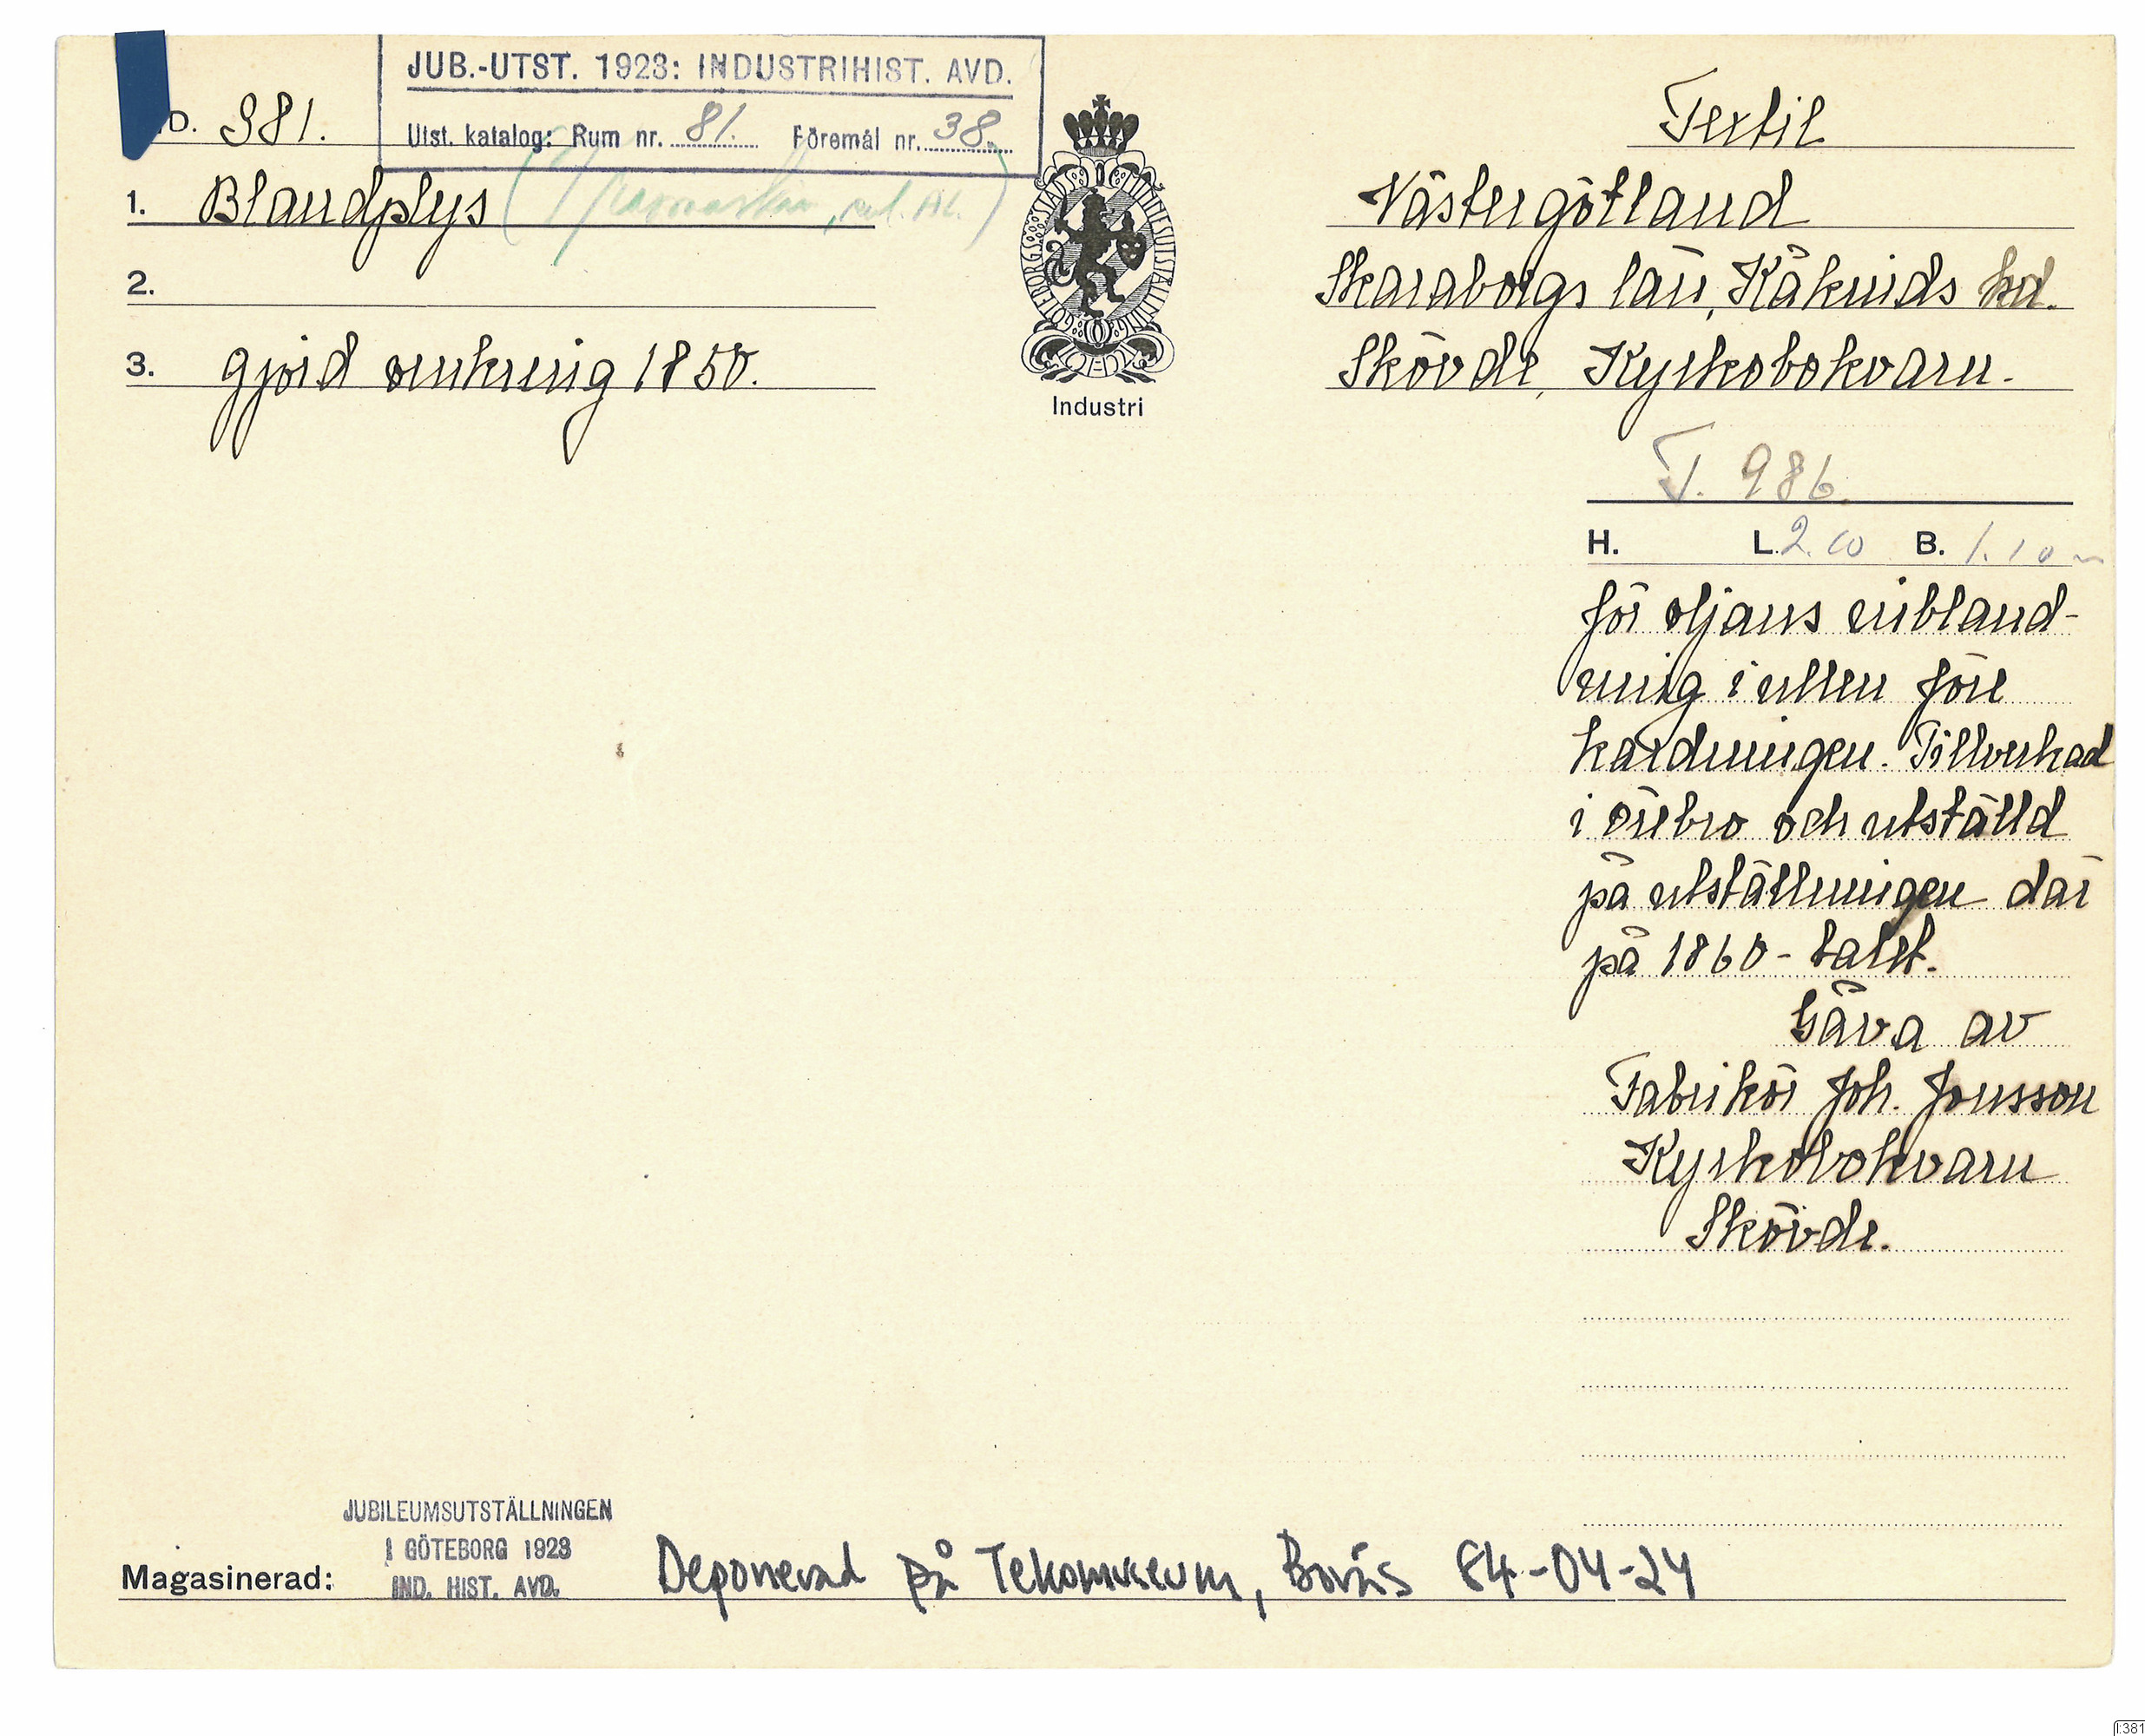 JUB.-UTST. 1923: INDUSTRIHIST. AVD.
D. 381.
Utst. katalog: Rum nr. 81. Föremål nr. 38.
1. Blandplys
2.
3. gjord omkring 1850.
GÖTEBORGS STADS JUBILEUMSUTSTÄLLNING
Industri
Textil
Västergötland
Skaraborgs län, Kåkinds hd.
Skövde, Kyrkebokvarn.
T. 986.
H. L. 2.10 B. 1.10 m
för oljans inbland-
ning i ullen före
kardningen. Tillverkad
i Örebro och utställd
på utställningen där
på 1860-talet.
Gåva av
Fabrikör Joh. Jonsson
Kyrkebokvarn
Skövde.
JUBILEUMSUTSTÄLLNINGEN
I GÖTEBORG 1923
IND. HIST. AVD.
Magasinerad: Deponerad på Tekomuseum, Borås 84-04-24
I:381